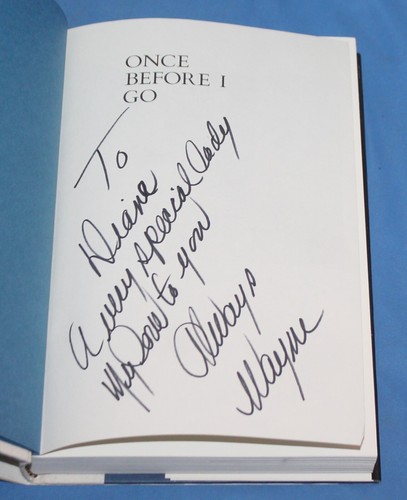 ONCE
BEFORE I
GO
To
Diane
A very special Lady
My Love to you
Always
Wayne